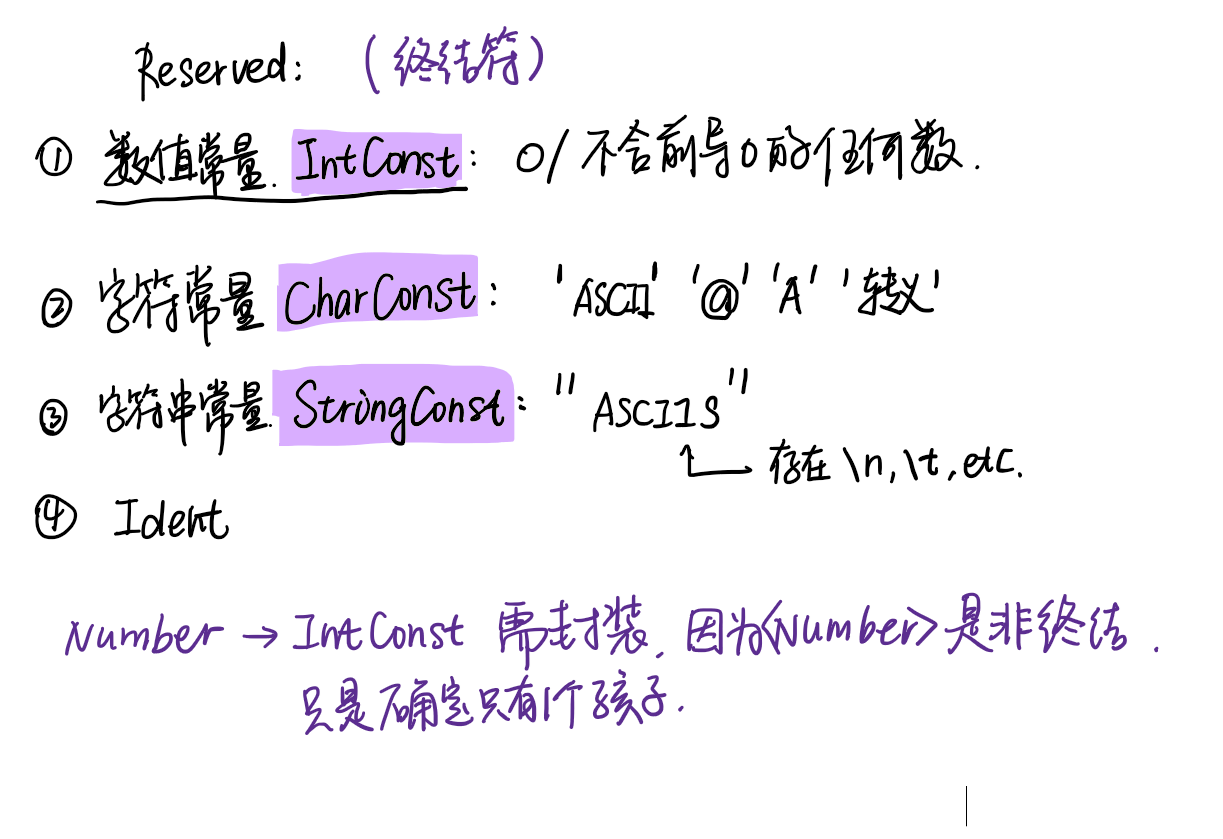 Reserved: (终结符)
① 数值常量. IntConst: 0/不含前导0的任何数.
② 字符常量 CharConst: 'ASCII' '@' 'A' '转义'
③ 字符串常量. StringConst: "ASCIIS"
存在\n,\t,etc.
④ Ident
Number → IntConst 需封装, 因为<Number>是非终结.
只是确定只有1个孩子.